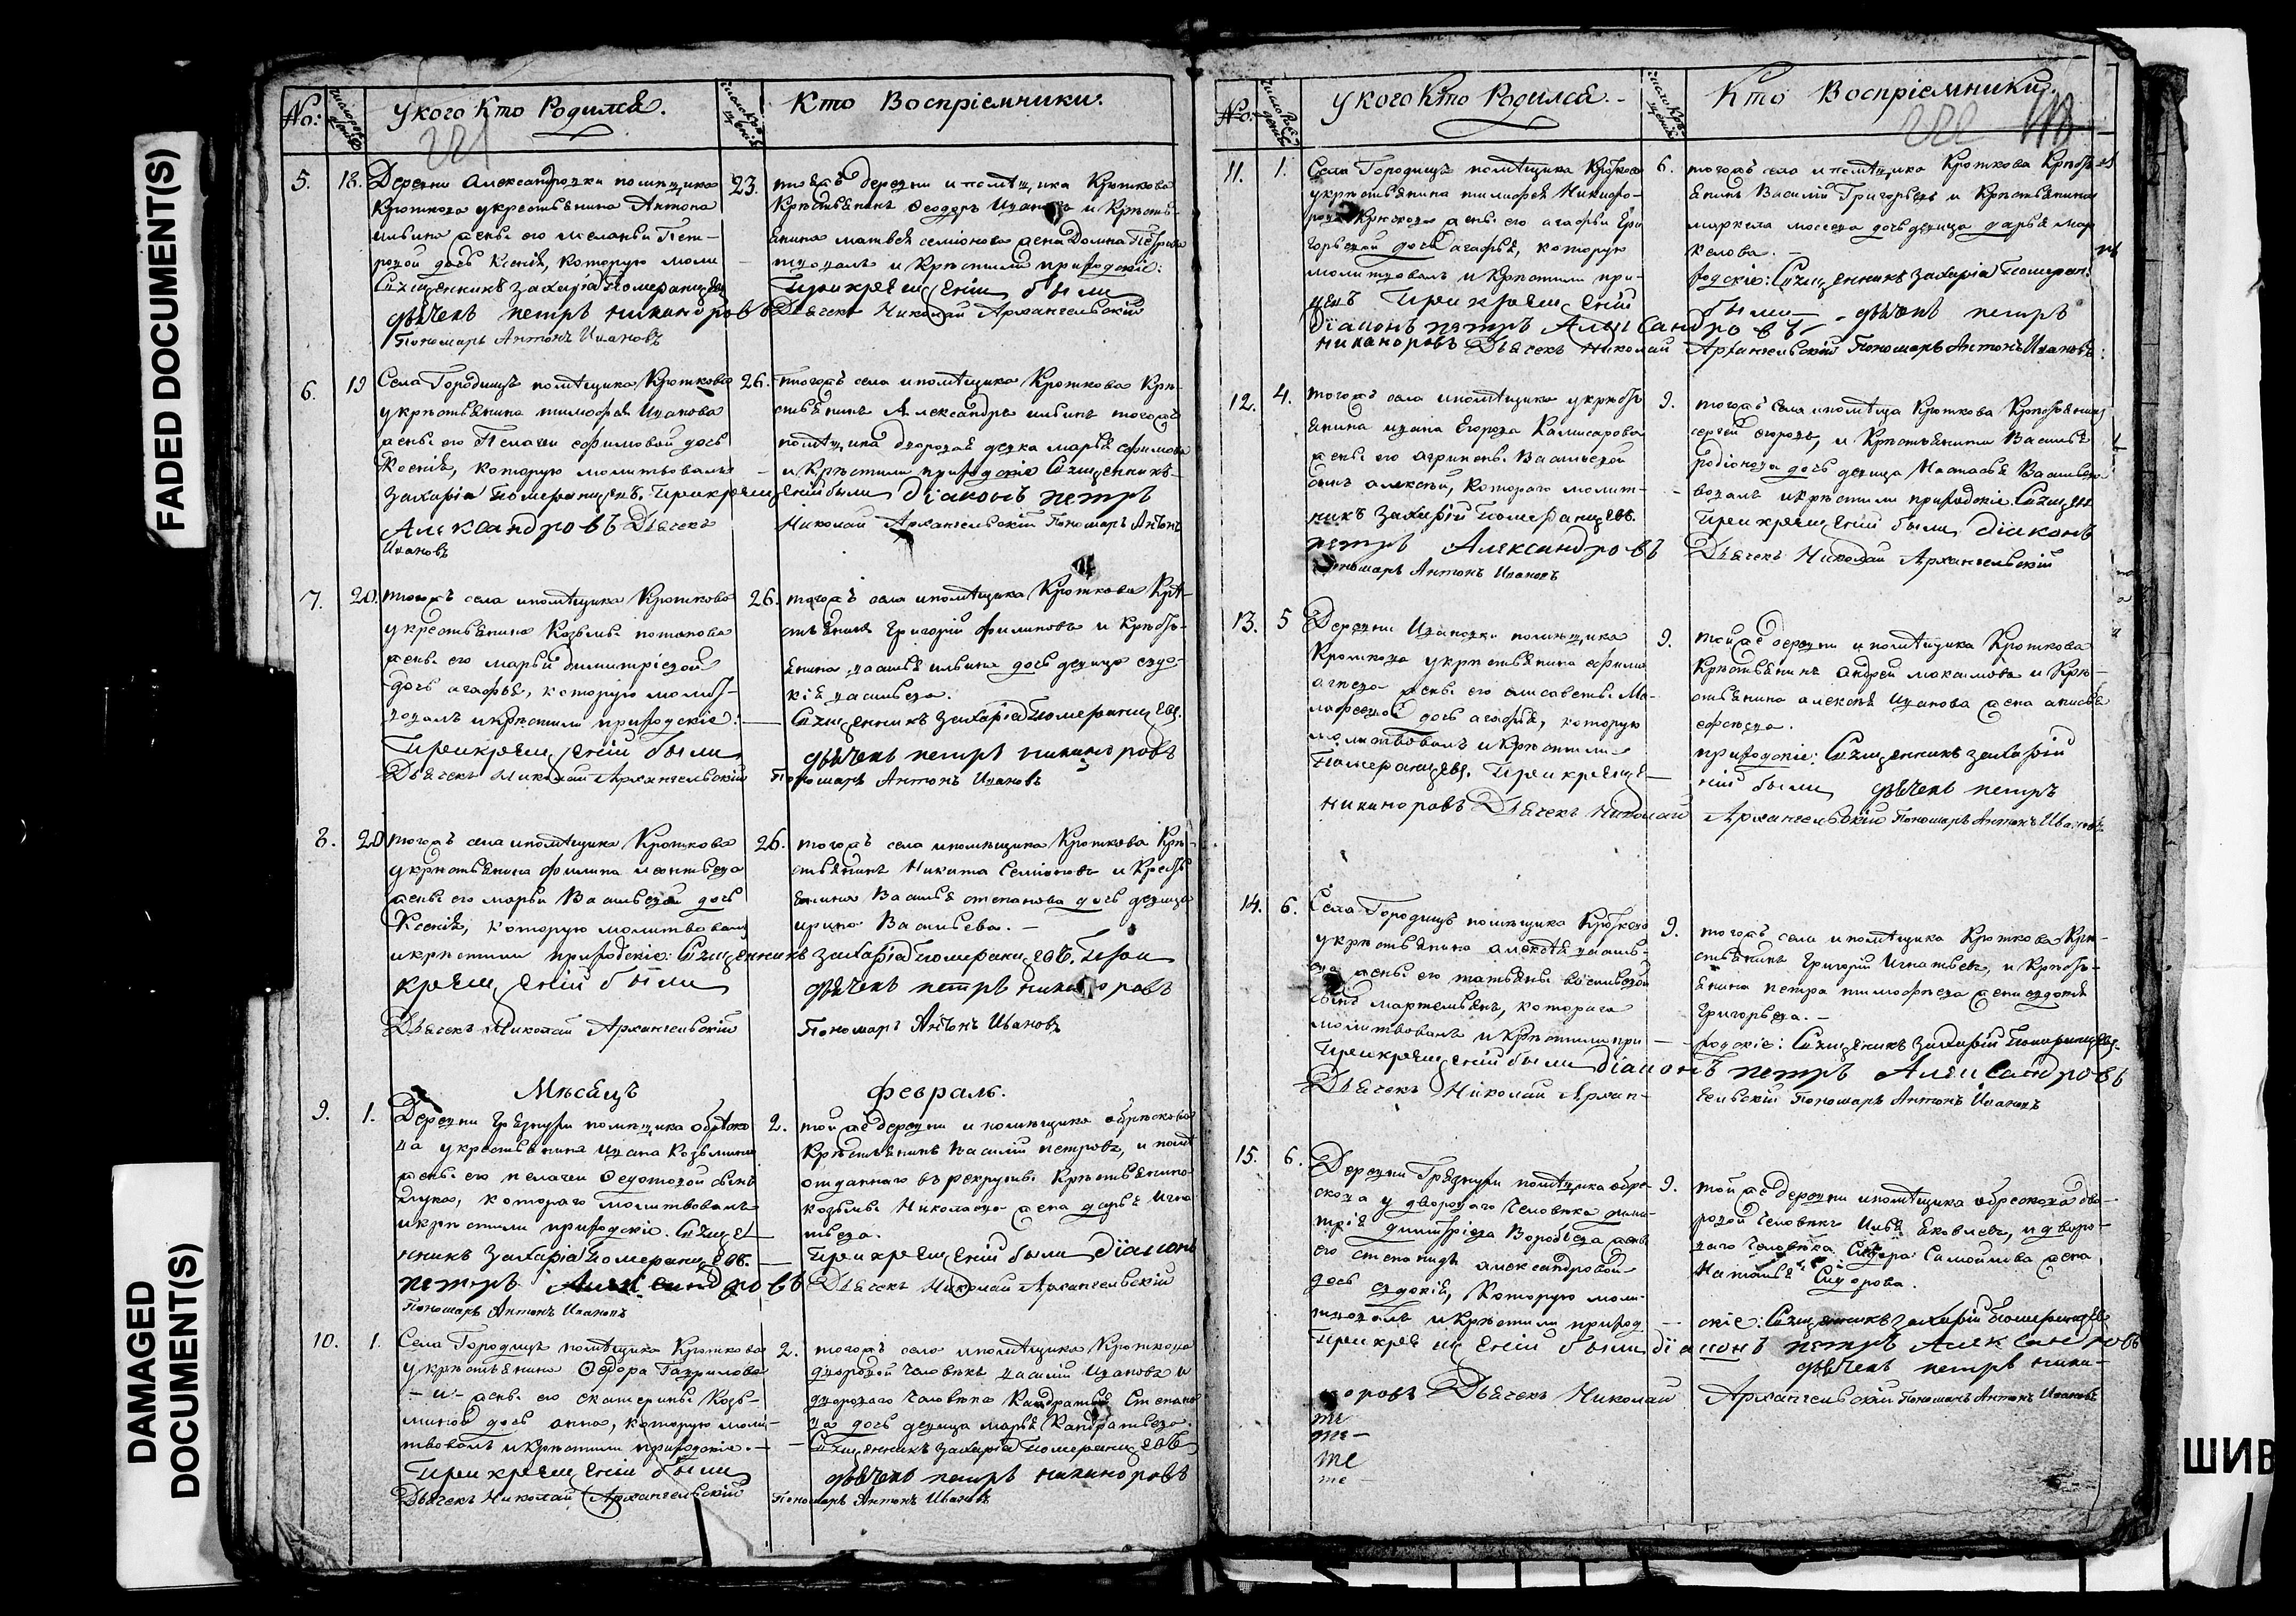 FADED DOCUMENT(S)
DAMAGED
DOCUMENT(S)
No:
У кого Кто Родился.
Кто Воспріемники.
221
5.
18.
Деревни Александровки помѣщика
Кроткова укрестьянина Антона
Ильина жены его Меланьи Пет-
ровой дочь Ксенія, которую моли
Священникъ Захарія Померанцевъ
дьячекъ петръ никаноровъ
Пономарь Антонъ Ивановъ
23.
тояжъ деревни и помѣщика Кроткова
Крѣстьянинъ Ѳеодоръ Ивановъ и Крѣсть-
янина матвея семіонова жена Домна Петрова
твовалъ и Крѣстили приходскіе:
При крещеніи были
Дьячекъ Николай Архангельскій
6.
19
Села Городищъ помѣщика Кроткова
укрѣстьянина тимофея Иванова
жены его Пелагеи ефимовой дочь
Ксенія, которую молитвовалъ
Захарія Померанцевъ. При крещеніи были діаконъ петръ
Александровъ Дьячекъ
Ивановъ
26.
тогожъ села и помѣщика Кроткова Крѣ-
стьянинъ Александръ ильинъ тогожъ
помѣщика дворовая девка марья ефимова
и Крѣстили приходскіе Священникъ
Николай Архангельскій Пономарь Антонъ
7.
20.
тогожъ села и помѣщика Кроткова
укрестьянина Козьмы потапова
жены его марьи димитріевой
дочь агафья, которую молит-
вовалъ и крѣстили приходскіе:
При крещеніи были
Дьячекъ Николай Архангельскій
26.
тогожъ села и помѣщика Кроткова Крѣ-
стьянинъ Григорій филиповъ и Крѣсть-
янина василья ильина дочь девица евдо-
кія васильева.
Священникъ Захарія Померанцевъ.
дьячекъ петръ никаноровъ
Пономарь Антонъ Ивановъ
8.
20
тогожъ села и помѣщика Кроткова
укрѣстьянина филипа леонтьева
жены его марьи Васильевой дочь
Ксенія, которую молитвовалъ
и крѣстили приходскіе: Священникъ Захарія Померанцевъ. При
крещеніи были
Дьячекъ Николай Архангельскій
26.
тогожъ села и помѣщика Кроткова Крѣ-
стьянинъ Никита Семіоновъ и Кресть
янина Василья степанова дочь девица
ирина Васильева.
дьячекъ петръ никаноровъ
Пономарь Антонъ Ивановъ
Мѣсяцъ
февраль.
9.
1.
Деревни Грязнухи помѣщика обрѣско
ва укрестьянина Ивана Козьмина
жены его пелагеи Ѳедотовой сынъ
Лука, котораго молитвовалъ
и крѣстили приходскіе. Священ
никъ Захарія Померанцевъ.
петръ Александровъ
Пономарь Антонъ Ивановъ
2.
тойже деревни и помѣщика обрѣскова
Крѣстьянинъ василій петровъ, и помѣ
отданнаго въ рекруты Крѣстьянина
козьмы Николаева жена дарья игна
тьева.
При крещеніи были діаконъ
Дьячекъ Николай Архангельскій
10.
1.
Села Городищъ помѣщика Кроткова
укрѣстьянина Ѳедора Гаврилова
жены его екатерины Козь-
миной дочь анна, которую моли-
твовалъ и Крѣстили приходскіе.
При крещеніи были
Дьячекъ Николай Архангельскій
2.
тогожъ села и помѣщика Кроткова
дворовой человѣкъ василій Ивановъ и
двороваго человѣка Кандратья Степано
ва дочь девица марья Кандратьева.
Священникъ Захарія Померанцевъ
дьячекъ петръ никаноровъ
Пономарь Антонъ Ивановъ
No:
У кого Кто Родился.
Кто Воспріемники.
222
11.
1.
Села Городищъ помѣщика Кроткова
укрѣстьянина тимофея Никифо-
рова жены его агафьи Гри
горьевой дочь агафья, которую
молитвовалъ и Крѣстили при-
При крещеніи
діаконъ петръ Александровъ
никаноровъ Дьячекъ Николай
6.
тогожъ села и помѣщика Кроткова Крѣсть
янинъ Василій Григорьевъ и Крѣстьянина
маркела дочь девица дарья мар
келова.
ходскіе: Священникъ Захарія Померан:
были дьячекъ петръ
Архангельскій Пономарь Антонъ Ивановъ
12.
4.
тогожъ села и помѣщика укрѣсть
янина ивана Егорова Камисарова
жены его агрипены Васильевой
сынъ алексѣй, котораго молит-
никъ Захарій Померанцевъ.
петръ Александровъ
Пономарь Антонъ Ивановъ
9.
тогожъ села и помѣща Кроткова Крѣстьянинъ
сергей егоровъ, и Крѣстьянина Василья
родіонова дочь девица Настасья Васильева
вовалъ и крѣстили приходскіе Священ
При крещеніи были діаконъ
Дьячекъ Николай Архангельскій
13.
5
Деревни Ивановки помѣщика
Кроткова укрѣстьянина ефима
агеева жены его елисаветы Ма-
лафеевой дочь агафья, которую
молитвовалъ и Крѣстили
Померанцевъ. При креще-
никаноровъ Дьячекъ Николай
9.
тойже деревни и помѣщика Кроткова
Крѣстьянинъ андрей максимовъ и Крѣ-
стьянина алексѣя Иванова жена анисья
приходскіе: Священникъ Захарій
ній были дьячекъ петръ
Архангельскій Пономарь Антонъ Ивановъ
14.
6.
Села Городищъ помѣщика Кроткова
укрѣстьянина алексѣя василь-
ева жены его татьяны васильевой
сынъ мартемьянъ, котораго
молитвовалъ и Крѣстили при
При крещеніи были діаконъ петръ Александровъ
Дьячекъ Николай Архан-
9.
тогожъ села и помѣщика Кроткова Крѣ-
стьянинъ Григорій Игнатьевъ, и Крѣсть-
янина петра тимофѣева жена евдокія
Григорьева.
ходскіе: Священникъ Захарій Померанцевъ.
гельскій Пономарь Антонъ Ивановъ
15.
6.
Деревни Грязнухи помѣщика обре-
скова у двороваго человѣка дими-
трія димитріева Воробьева жены
его степаниды александровой
дочь евдокія, Которую моли-
твовалъ и Крѣстили приход
При крещеніи были діаконъ петръ Александровъ
норовъ Дьячекъ Николай
9.
тойже деревни и помѣщика обрескова дво-
ровой человѣкъ Илья Яковлевъ, и дворо-
ваго человѣка Сидора Самойлова жена
Наталья Сидорова.
скіе: Священникъ Захарій Померанцевъ
дьячекъ петръ ника-
Архангельскій Пономарь Антонъ Ивановъ
те
те-
те
те
ШИВ